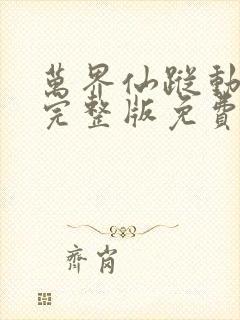 萬界仙蹤動
完整版免費
齊肖